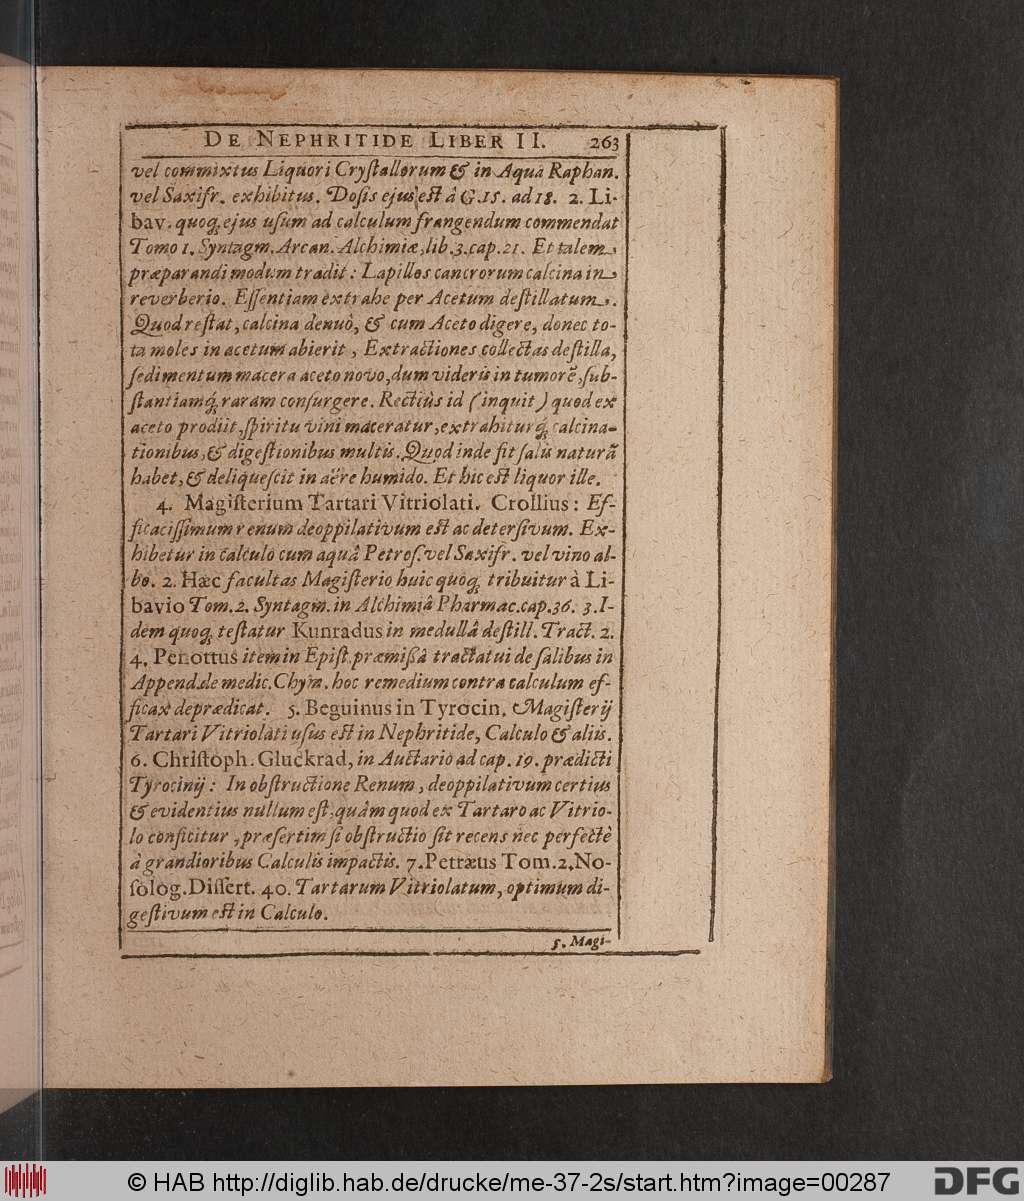 DE NEPHRITIDE LIBER II. 263
vel commixtus Liquori Cryſtallorum & in Aquâ Raphan.
vel Saxifr. exhibitus. Doſis ejus eſt â G.15. ad 18. 2. Li-
bav. quoq́; ejus uſum ad calculum frangendum commendat
Tomo 1. Syntagm. Arcan. Alchimiæ, lib.3.cap.21. Et talem
præparandi modum tradit: Lapillos cancrorum calcina in
reverberio. Eſſentiam extrahe per Acetum deſtillatum.
Quod reſtat, calcina denuò, & cum Aceto digere, donec to-
ta moles in acetum abierit, Extractiones collectas deſtilla,
ſedimentum macera aceto novo, dum videris in tumorẽ, ſub-
ſtantiamq́; raram conſurgere. Rectiùs id (inquit) quod ex
aceto prodiit, ſpiritu vini maceratur, extrahiturq́; calcina-
tionibus, & digeſtionibus multis. Quod inde fit ſalis naturã
habet, & deliqueſcit in aëre humido. Et hic eſt liquor ille.
4. Magiſterium Tartari Vitriolati. Crollius: Ef-
ficaciſſimum renum deoppilativum eſt ac deterſivum. Ex-
hibetur in calculo cum aquâ Petroſ. vel Saxifr. vel vino al-
bo. 2. Hæc facultas Magiſterio huic quoq́; tribuitur à Li-
bavio Tom.2. Syntagm. in Alchimiâ Pharmac.cap.36. 3. I-
dem quoq́; teſtatur Kunradus in medullâ deſtill. Tract. 2.
4. Penottus item in Epiſt. præmiſſâ tractatui de ſalibus in
Append. de medic. Chym. hoc remedium contra calculum ef-
ficax deprædicat. 5. Beguinus in Tyrocin. Magiſterij
Tartari Vitriolati uſus eſt in Nephritide, Calculo & aliis.
6. Chriſtoph. Gluckrad, in Auctario ad cap. 19. prædicti
Tyrocinij: In obſtructione Renum, deoppilativum certius
& evidentius nullum eſt, quàm quod ex Tartaro ac Vitrio-
lo conficitur, præſertim ſi obſtructio ſit recens nec perfectè
à grandioribus Calculis impactis. 7. Petræus Tom.2. No-
ſolog. Diſſert. 40. Tartarum Vitriolatum, optimum di-
geſtivum eſt in Calculo.
5. Magi-
© HAB http://diglib.hab.de/drucke/me-37-2s/start.htm?image=00287
DFG